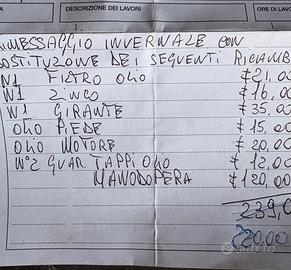 DESCRIZIONE DEI LAVORI
ORE DI LAVO
RIMESSAGGIO INVERNALE CON
SOSTITUZIONE DEI SEGUENTI RICAMB
N1 FILTRO OLIO € 21,0
N1 ZINCO € 16,0
N1 GIRANTE € 35,0
OLIO PIEDE € 15,0
OLIO MOTORE € 20,0
N°2 GUAR TAPPI OLIO € 12,0
MANODOPERA € 120,0
239,0
220,00